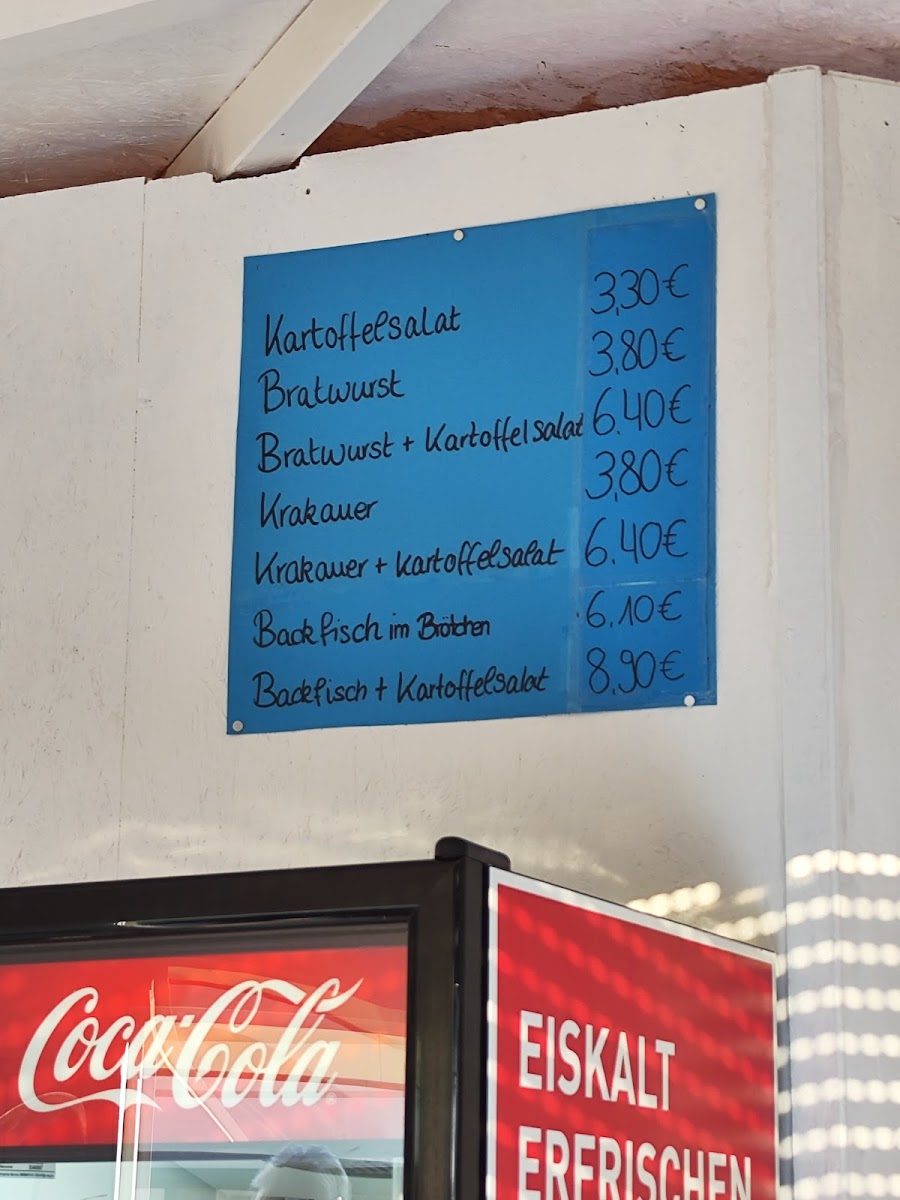 Kartoffelsalat 3,30€
Bratwurst 3,80€
Bratwurst + Kartoffelsalat 6.40€
Krakauer 3,80€
Krakauer + Kartoffelsalat 6.40€
Backfisch im Brötchen 6.10€
Backfisch + Kartoffelsalat 8,90€
Coca-Cola
EISKALT
ERFRISCHEN